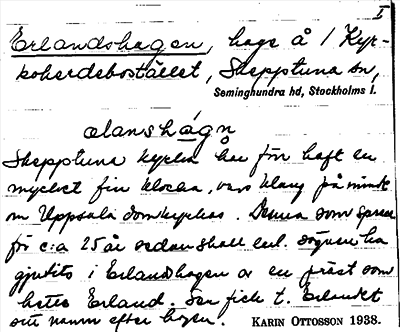 I
Erlandshagen, hage å / Kyr-
koherdebostället, Skepptuna sn,
Seminghundra hd, Stockholms l.
ǝlanshágn
Skepptuna kyrka har förr haft en
mycket fin klocka, vars klang påminde
om Uppsala domkyrkas. Denna som sprack
för c:a 25 år sedan skall enl. sägnen ha
gjutits i Erlandshagen av en präst som
hette Erland. Ser fick t. Erlandet
sitt namn efter hagen.
KARIN OTTOSSON 1938.